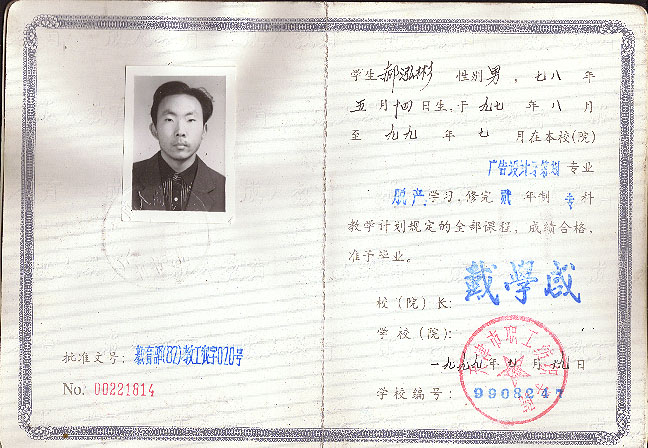 批准文号：教育部(82)教工农字020号
No. 00221814
学生郝泓彬 性别男，七八年
五月十四日生，于九七年八月
至九九年七月在本校(院)
广告设计与策划专业
脱产学习，修完贰年制专科
教学计划规定的全部课程，成绩合格，
准予毕业。
校(院)长：戴學威
学校(院)：
一九九九年 月 九日
学校编号：9908247